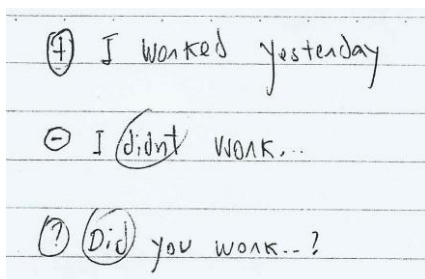 (+) I worked yesterday
(-) I didnt work...
(?) Did you work..?